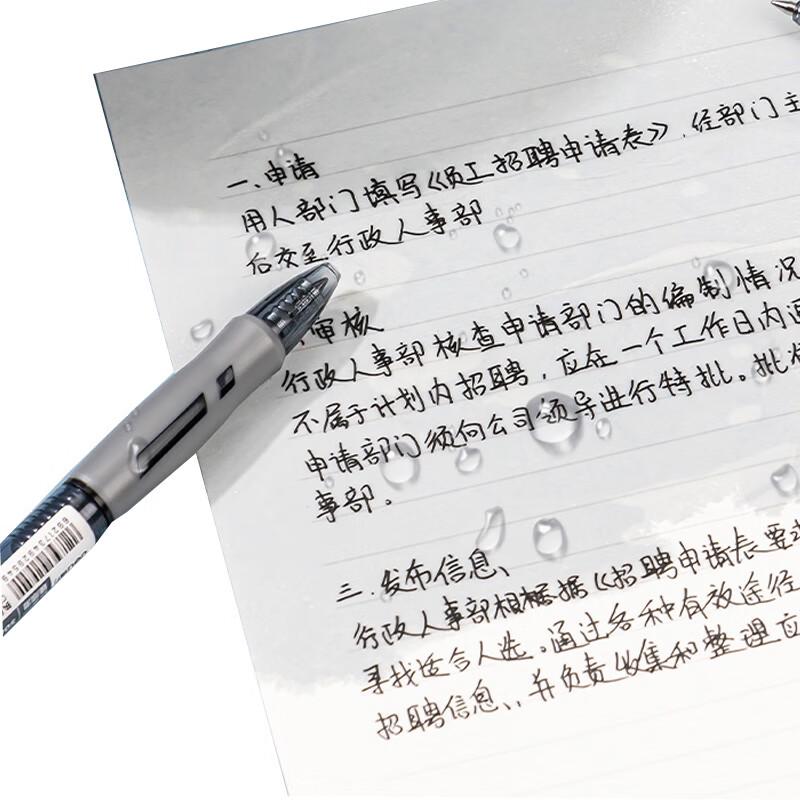 一、申请
用人部门填写《员工招聘申请表》,经部门主
后交至行政人事部
审核
行政人事部核查申请部门的编制情况
不属于计划内招聘,应在一个工作日内
申请部门须向公司领导进行特批。批
事部。
三.发布信息、
行政人事部根据《招聘申请表要求
寻找适合人选。通过各种有效途径
招聘信息、,并负责收集和整理应
6921734928549